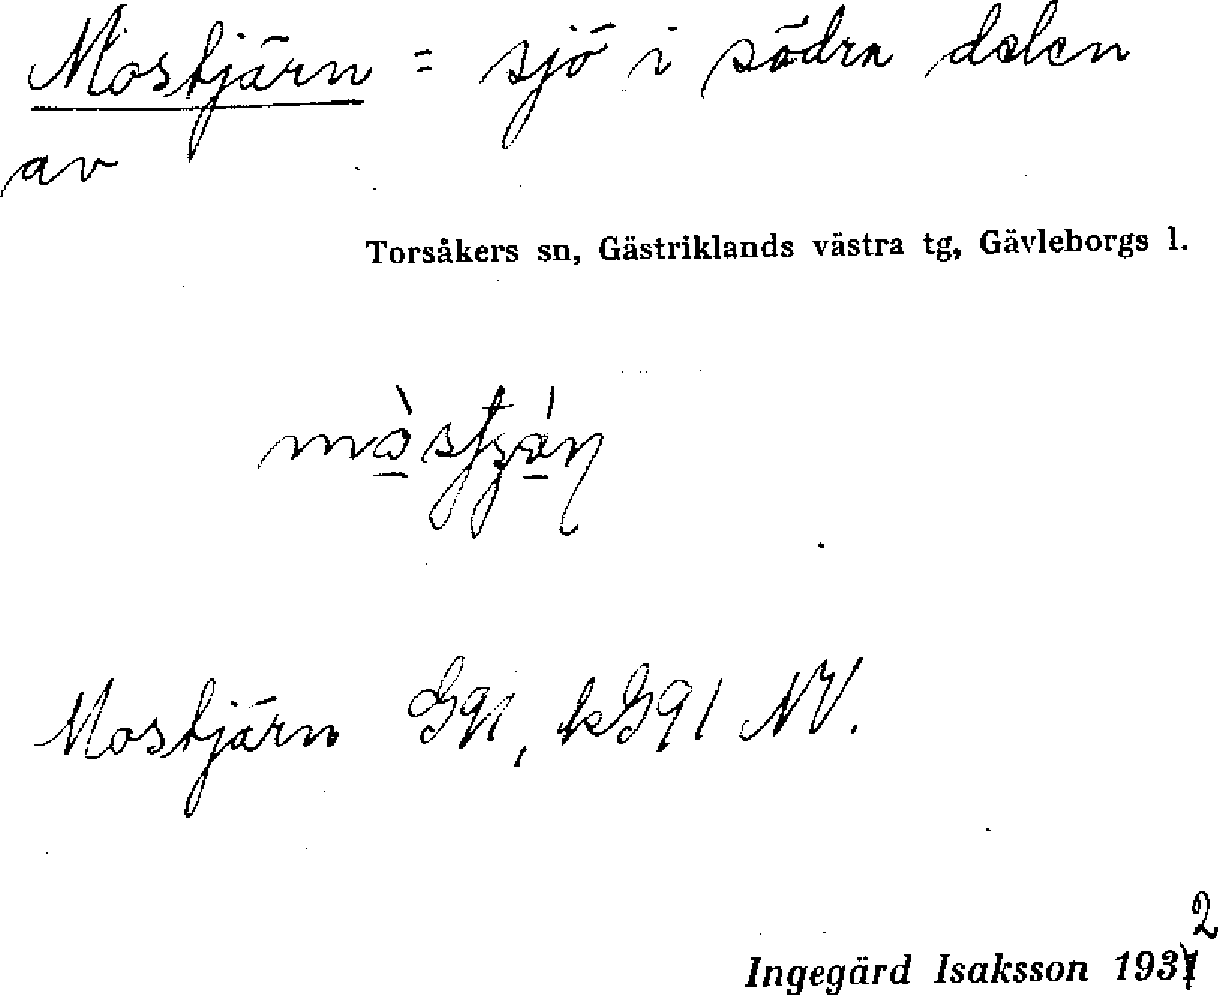 Mostjärn = sjö i södra delen
av
Torsåkers sn, Gästriklands västra tg, Gävleborgs l.
Mostjärn G91, kG91 NV.
2
Ingegärd Isaksson 1931